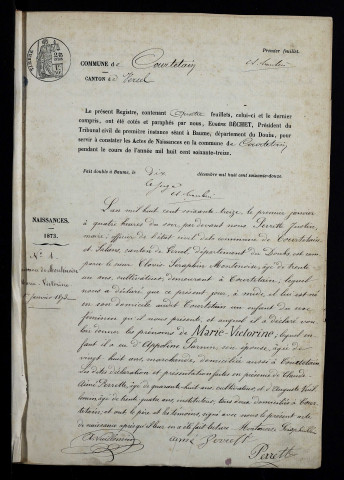 Premier feuillet.
COMMUNE de Courtetain
CANTON de Vercel
Le présent Registre, contenant quatre feuillets, celui-ci et le dernier
compris, ont été cotés et paraphés par nous, BÉCHET, Président du
Tribunal civil de première instance séant à Baume, département du Doubs, pour
servir à constater les Actes de Naissances en la commune de Courtetain
pendant le cours de l'année mil huit cent soixante-treize.
Fait double à Baume, le dix décembre mil huit cent soixante-douze.
Le juge
NAISSANCES.
1873.
N° 1.
Marie-Victorine
L'an mil huit cent soixante treize le premier janvier
à quatre heures du soir, par devant nous Perrett Justin,
maire officier de l'état civil de la commune de Courtetain
et Salans canton de Vercel, département du Doubs est com-
paru le nommé Séraphin Montenoise, âgé de trente
un ans, cultivateur, demeurant à Courtetain, lequel
nous a déclaré que ce présent jour, à midi, est né
en son domicile audit Courtetain un enfant du sexe
féminin qu'il nous présente, et auquel il a déclaré vou-
loir donner les prénoms de Marie-Victorine, lequel en-
fant il a eu d'Appoline son épouse, âgée de
vingt huit ans, domiciliée aussi à Courtetain
Les dites déclaration et présentation faites en présence de Claude
Aimé Perrette, âgé de quarante-huit ans, cultivateur, et d'Auguste
âgé de trente quatre ans, instituteur, tous deux domiciliés à Cour-
tetain; et ont le père et les témoins, signé avec nous le présent acte
de naissance après qu'il leur en a été fait lecture.
Aimé Perrett
Perrett